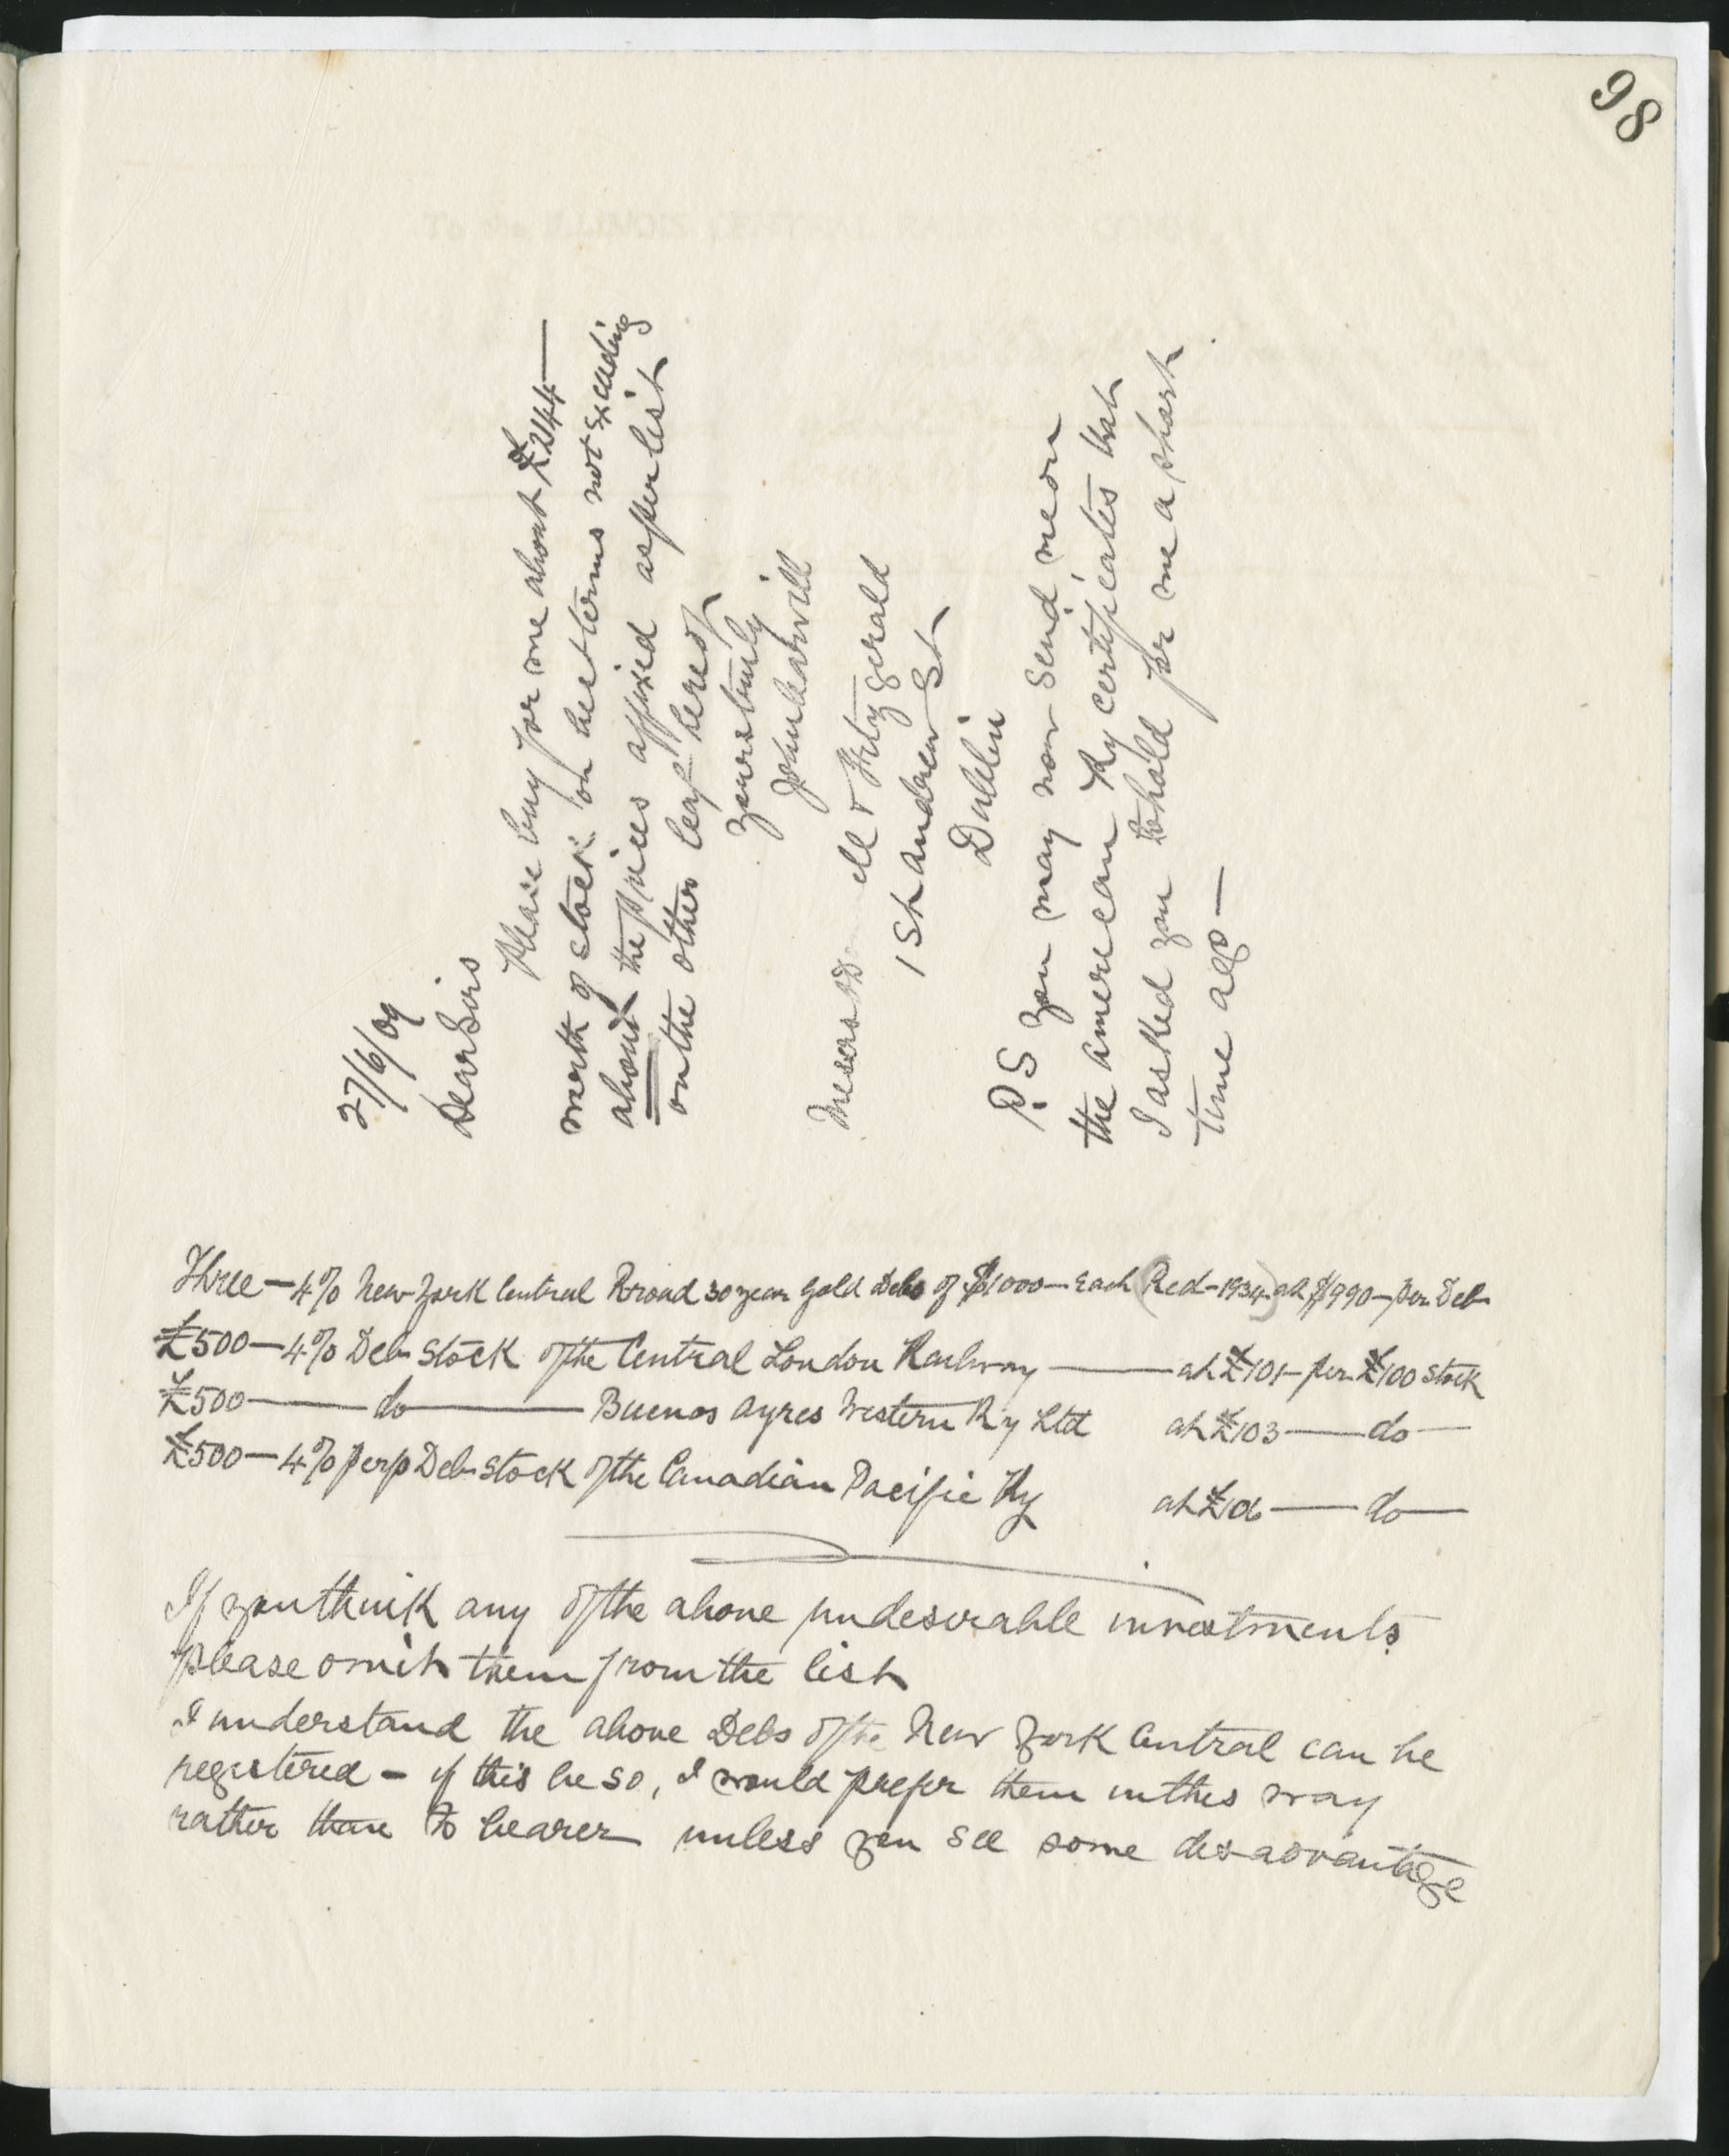 98
27/6/09
Dear Sirs
Please buy for me about £2144—
worth of stock on best terms not exceeding
about the prices affixed as per list
on the other leaf hereof
yours truly
John Harwill
Messrs & Fitzgerald
1 St Andrew St
Dublin
P.S you may now send me on
the American Ry certificates that
I asked you to hold for me a short
time ago —
Three — 4% New York Central Rroad 30 year gold Debs of $1000 — Each (Red – 1934) at $990 — per Deb
£500 — 4% Deb Stock of the Central London Railway —— at £101 — per £100 stock
£500 —— do —— Buenos Ayres Western Ry Ltd at £103 —— do —
£500 — 4% perp Deb Stock of the Canadian Pacific Ry at £106 —— do —
If you think any of the above undesirable investments
please omit them from the list
I understand the above Debs of the New York Central can be
registered – if this be so, I would prefer them in this way
rather than to bearer unless you see some disadvantage